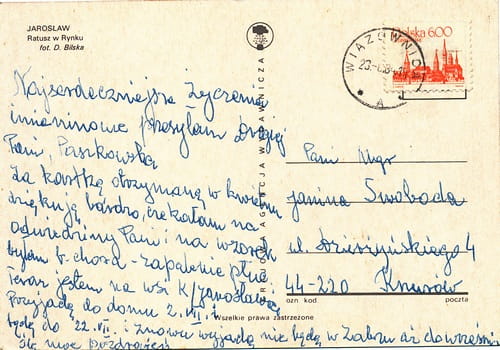 JAROSŁAW
Ratusz w Rynku
fot. D. Bilska
Najserdeczniejsze życzenia
imieninowe przesyłam drogiej
Pani, Paszkowska
Za kartkę otrzymaną w kwietniu
dziękuję bardzo, czekałam na
odwiedziny Pani i na wzorek
byłam b. chora - zapalenie płuc
Teraz jestem na wsi k/Jarosławia
Przyjadę do domu 2.VII. i
będę do 22.VII. i znowu wyjadę nie będę w Zabrzu aż do września
moc pozdrowień
KRAJOWA AGENCJA WYDAWNICZA
Wszelkie prawa zastrzeżone
Polska 6,00
WIAZOWNIC
A
Pani Mgr
Janina Swoboda
ul. Dzierżyńskiego 4
44-220 Knurów
ozn kod
poczta